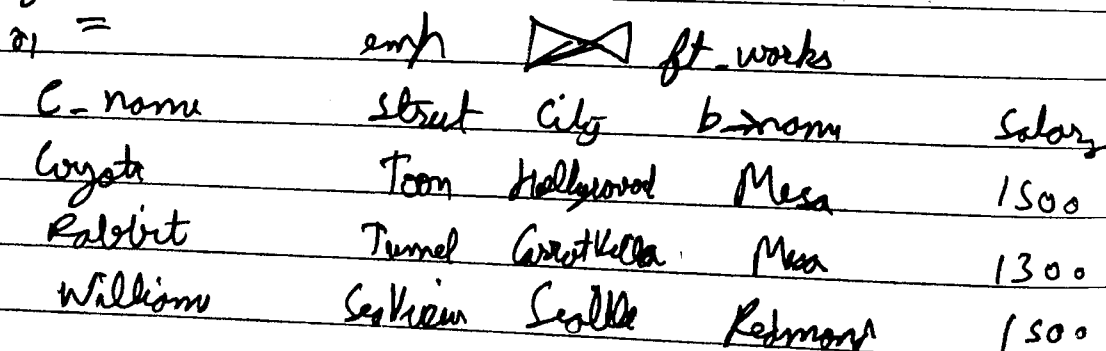 r1 = emp ⋈ ft_works
e_name street city b_name salary
Coyote Toon Hollywood Mesa 1500
Rabbit Tunnel CarrotVilla Mesa 1300
Williams SeaView Seattle Redmond 1500